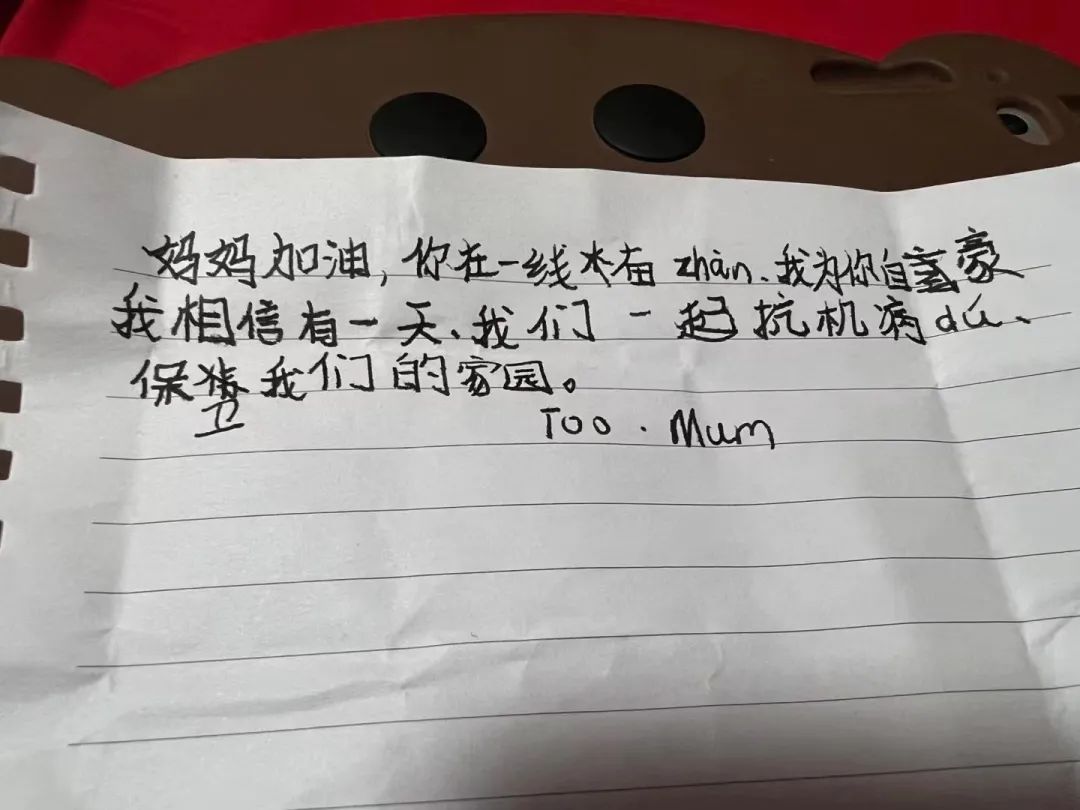 妈妈加油，你在一线木有 zhàn、我为你自豪
我相信有一天、我们一起抗机病dú、
保卫我们的家园。
Too . Mum